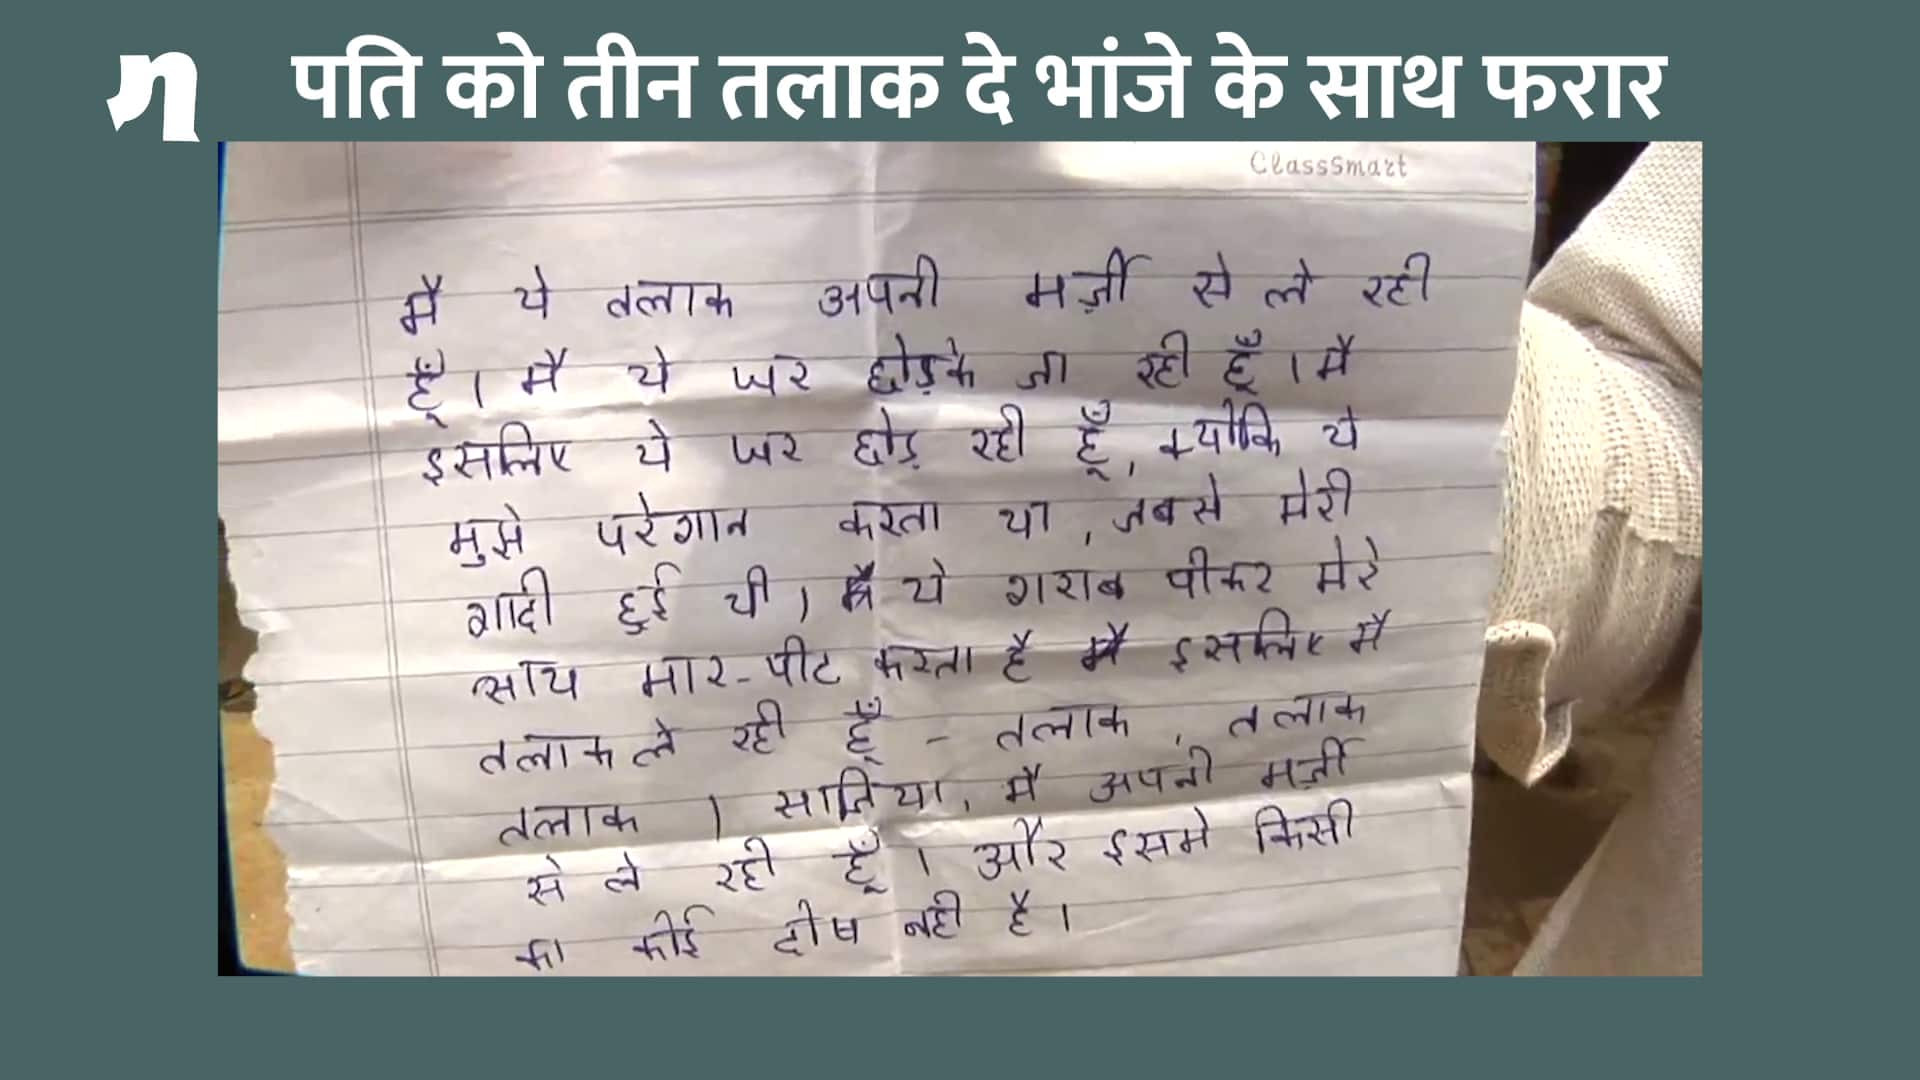 n पति को तीन तलाक दे भांजे के साथ फरार
ClassSmart
मै ये तलाक अपनी मर्ज़ी से ले रही
हूँ। मै ये घर छोड़के जा रही हूँ। मै
इसलिए ये घर छोड़ रही हूँ, क्योकि ये
मुझे परेशान करता था, जबसे मेरी
शादी हुई थी। ये शराब पीकर मेरे
साथ मार-पीट करता है इसलिए मै
तलाक ले रही हूँ - तलाक, तलाक
तलाक । मै अपनी मर्ज़ी
से ले रही हूँ। और इसमे किसी
का कोई दोष नही है।